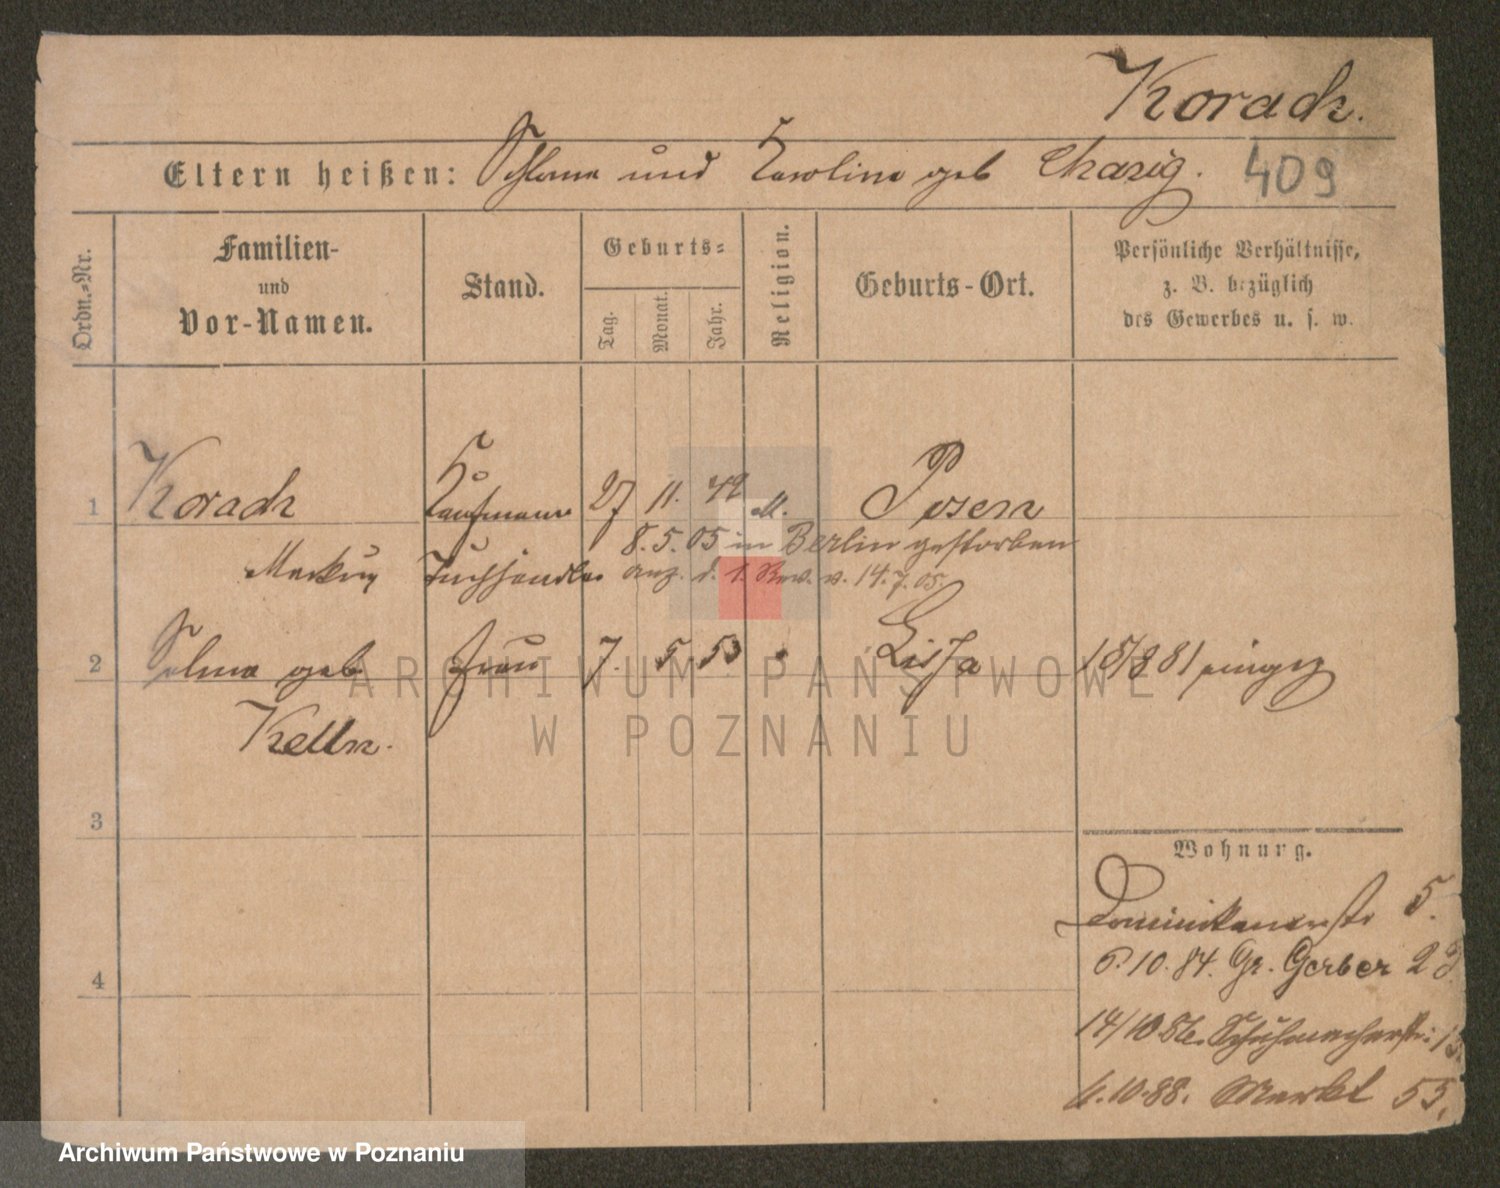 Korach.
Eltern heißen: Schlome und Karoline geb Chasig. 409
Ordn.-Nr.
Familien-
und
Vor-Namen.
Stand.
Geburts-
Tag.
Monat.
Jahr.
Religion.
Geburts-Ort.
Persönliche Verhältnisse,
z. B. bezüglich
des Gewerbes u. s. w.
1 Korach Kaufmann 27 11. 42 M. Posen
8. 5. 05 in Berlin gestorben
Markus Tuchhändler anz. d. 1. Rev. v. 14. 7. 05.
2 Selma geb Frau 7. 5 53 Lissa 15/8 81 eingez
3
4
Wohnung.
Dominikanerstr 5.
6. 10. 84. Gr. Gerber 23
14/10 86. Schuhmacherstr: 13
6. 10. 88. Markt 55.
ARCHIWUM PAŃSTWOWE
W POZNANIU
Archiwum Państwowe w Poznaniu